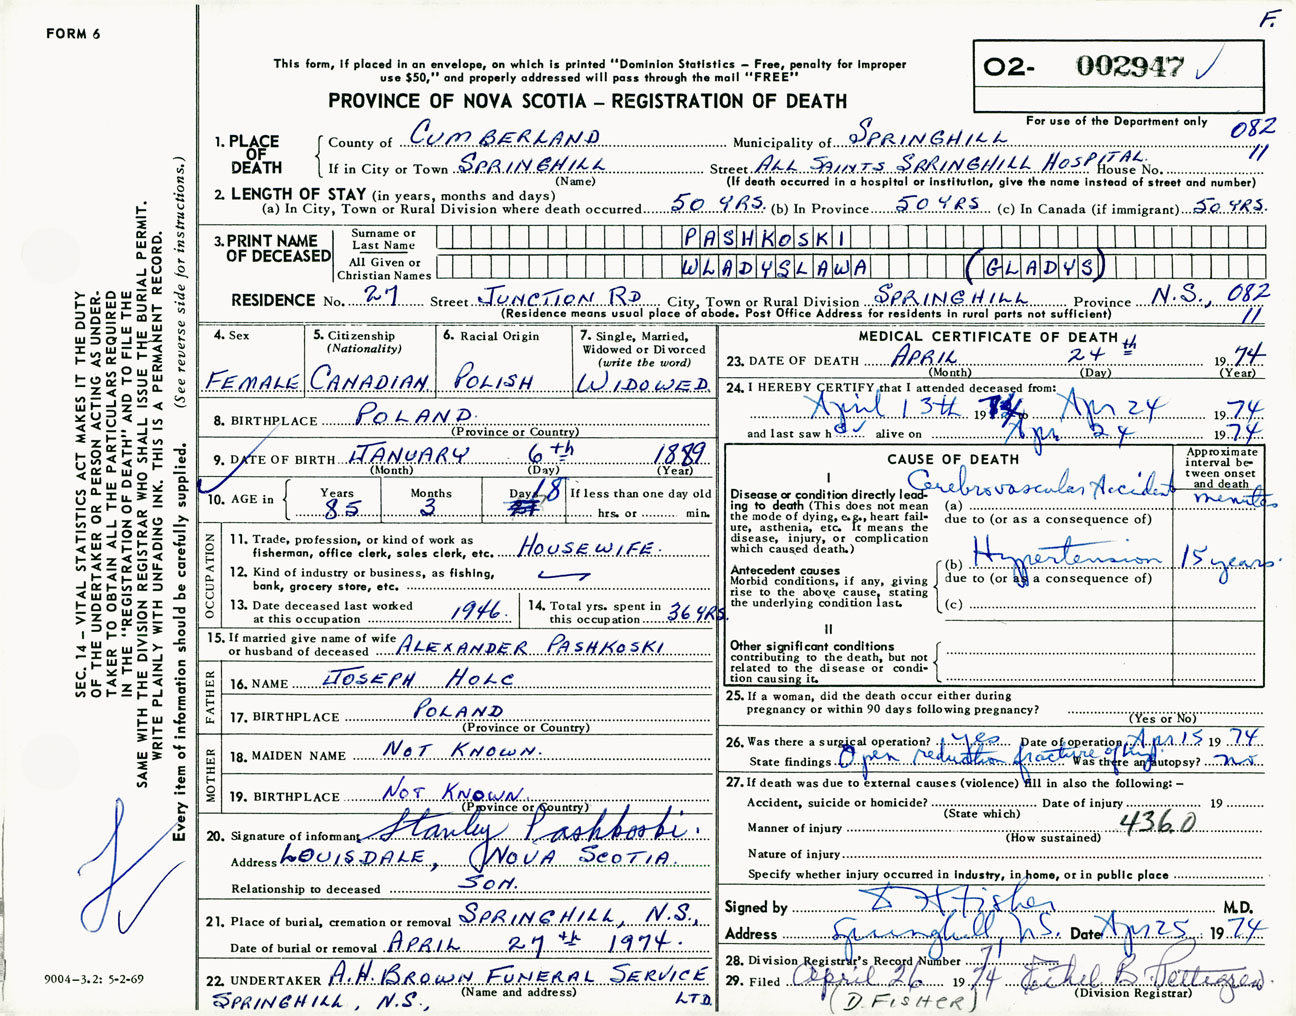 F.
FORM 6
This form, if placed in an envelope, on which is printed "Dominion Statistics – Free, penalty for improper
use $50," and properly addressed will pass through the mail "FREE"
PROVINCE OF NOVA SCOTIA – REGISTRATION OF DEATH
02- 002947
For use of the Department only
082
11
1. PLACE OF DEATH
County of CUMBERLAND Municipality of SPRINGHILL
If in City or Town SPRINGHILL Street ALL SAINTS SPRINGHILL HOSPITAL House No.
(Name) (If death occurred in a hospital or institution, give the name instead of street and number)
2. LENGTH OF STAY (in years, months and days)
(a) In City, Town or Rural Division where death occurred 50 YRS. (b) In Province 50 YRS (c) In Canada (if immigrant) 50 YRS.
3. PRINT NAME OF DECEASED
Surname or Last Name PASHKOSKI
All Given or Christian Names WLADYSLAWA (GLADYS)
RESIDENCE No. 27 Street JUNCTION RD City, Town or Rural Division SPRINGHILL Province N.S., 082
11
(Residence means usual place of abode. Post Office Address for residents in rural parts not sufficient)
4. Sex
FEMALE
5. Citizenship
(Nationality)
CANADIAN
6. Racial Origin
POLISH
7. Single, Married,
Widowed or Divorced
(write the word)
WIDOWED
8. BIRTHPLACE POLAND
(Province or Country)
9. DATE OF BIRTH JANUARY 6th 1889
(Month) (Day) (Year)
10. AGE in
Years 85
Months 3
Days 18
If less than one day old
hrs. or min.
OCCUPATION
11. Trade, profession, or kind of work as
fisherman, office clerk, sales clerk, etc. HOUSEWIFE.
12. Kind of industry or business, as fishing,
bank, grocery store, etc.
13. Date deceased last worked
at this occupation 1946
14. Total yrs. spent in
this occupation 36 YRS.
15. If married give name of wife
or husband of deceased ALEXANDER PASHKOSKI
FATHER
16. NAME JOSEPH HOLC
17. BIRTHPLACE POLAND
(Province or Country)
MOTHER
18. MAIDEN NAME NOT KNOWN.
19. BIRTHPLACE NOT KNOWN.
(Province or Country)
20. Signature of informant Stanley Pashkoski.
Address LOUISDALE, NOVA SCOTIA.
Relationship to deceased SON.
21. Place of burial, cremation or removal SPRINGHILL, N.S.,
Date of burial or removal APRIL 27th 1974.
22. UNDERTAKER A.H. BROWN FUNERAL SERVICE
(Name and address)
SPRINGHILL, N.S., LTD.
MEDICAL CERTIFICATE OF DEATH
23. DATE OF DEATH APRIL 24th 1974
(Month) (Day) (Year)
24. I HEREBY CERTIFY that I attended deceased from:
April 13th 1974 Apr 24 1974
and last saw her alive on Apr 24 1974
CAUSE OF DEATH
Approximate
interval be-
tween onset
and death
I
Disease or condition directly lead-
ing to death (This does not mean
the mode of dying, e.g., heart fail-
ure, asthenia, etc. It means the
disease, injury, or complication
which caused death.)
(a) Cerebrovascular Accident minutes
due to (or as a consequence of)
Antecedent causes
Morbid conditions, if any, giving
rise to the above cause, stating
the underlying condition last.
(b) Hypertension 15 years.
due to (or as a consequence of)
(c)
II
Other significant conditions
contributing to the death, but not
related to the disease or condi-
tion causing it.
25. If a woman, did the death occur either during
pregnancy or within 90 days following pregnancy?
(Yes or No)
26. Was there a surgical operation? Yes Date of operation Apr 15 1974
State findings Open reduction fracture of hip. Was there an autopsy? no
27. If death was due to external causes (violence) fill in also the following:–
Accident, suicide or homicide? Date of injury 19
(State which)
Manner of injury 436.0
(How sustained)
Nature of injury
Specify whether injury occurred in industry, in home, or in public place
Signed by D H Fisher M.D.
Address Springhill, N.S. Date Apr 25 1974
28. Division Registrar's Record Number 71
29. Filed April 26 1974 Ethel B. Pettigrew.
(Division Registrar)
(D. FISHER)
SEC. 14 – VITAL STATISTICS ACT MAKES IT THE DUTY
OF THE UNDERTAKER OR PERSON ACTING AS UNDER-
TAKER TO OBTAIN ALL THE PARTICULARS REQUIRED
IN THE "REGISTRATION OF DEATH" AND TO FILE THE
SAME WITH THE DIVISION REGISTRAR WHO SHALL ISSUE THE BURIAL PERMIT.
WRITE PLAINLY WITH UNFADING INK. THIS IS A PERMANENT RECORD.
Every item of information should be carefully supplied. (See reverse side for instructions.)
9004–3.2: 5-2-69